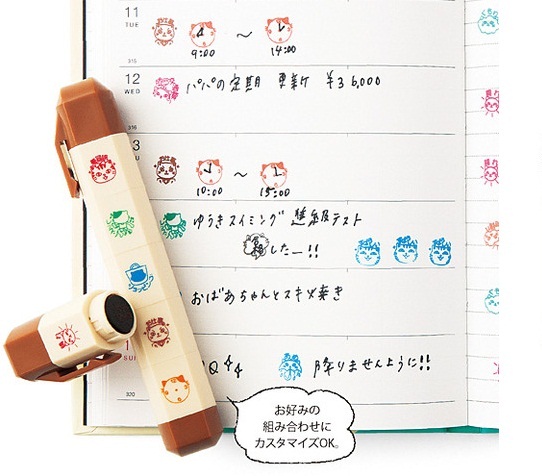 11
TUE
9:00 〜 14:00
315
12
WED
パパの定期 更新 ¥36,000
316
3
THU
10:00 〜 15:00
ゆうきスイミング 進級テスト
したー!!
おばあちゃんとスキヤキ
SUN
降りませんように!!
320
お好みの
組み合わせに
カスタマイズOK。